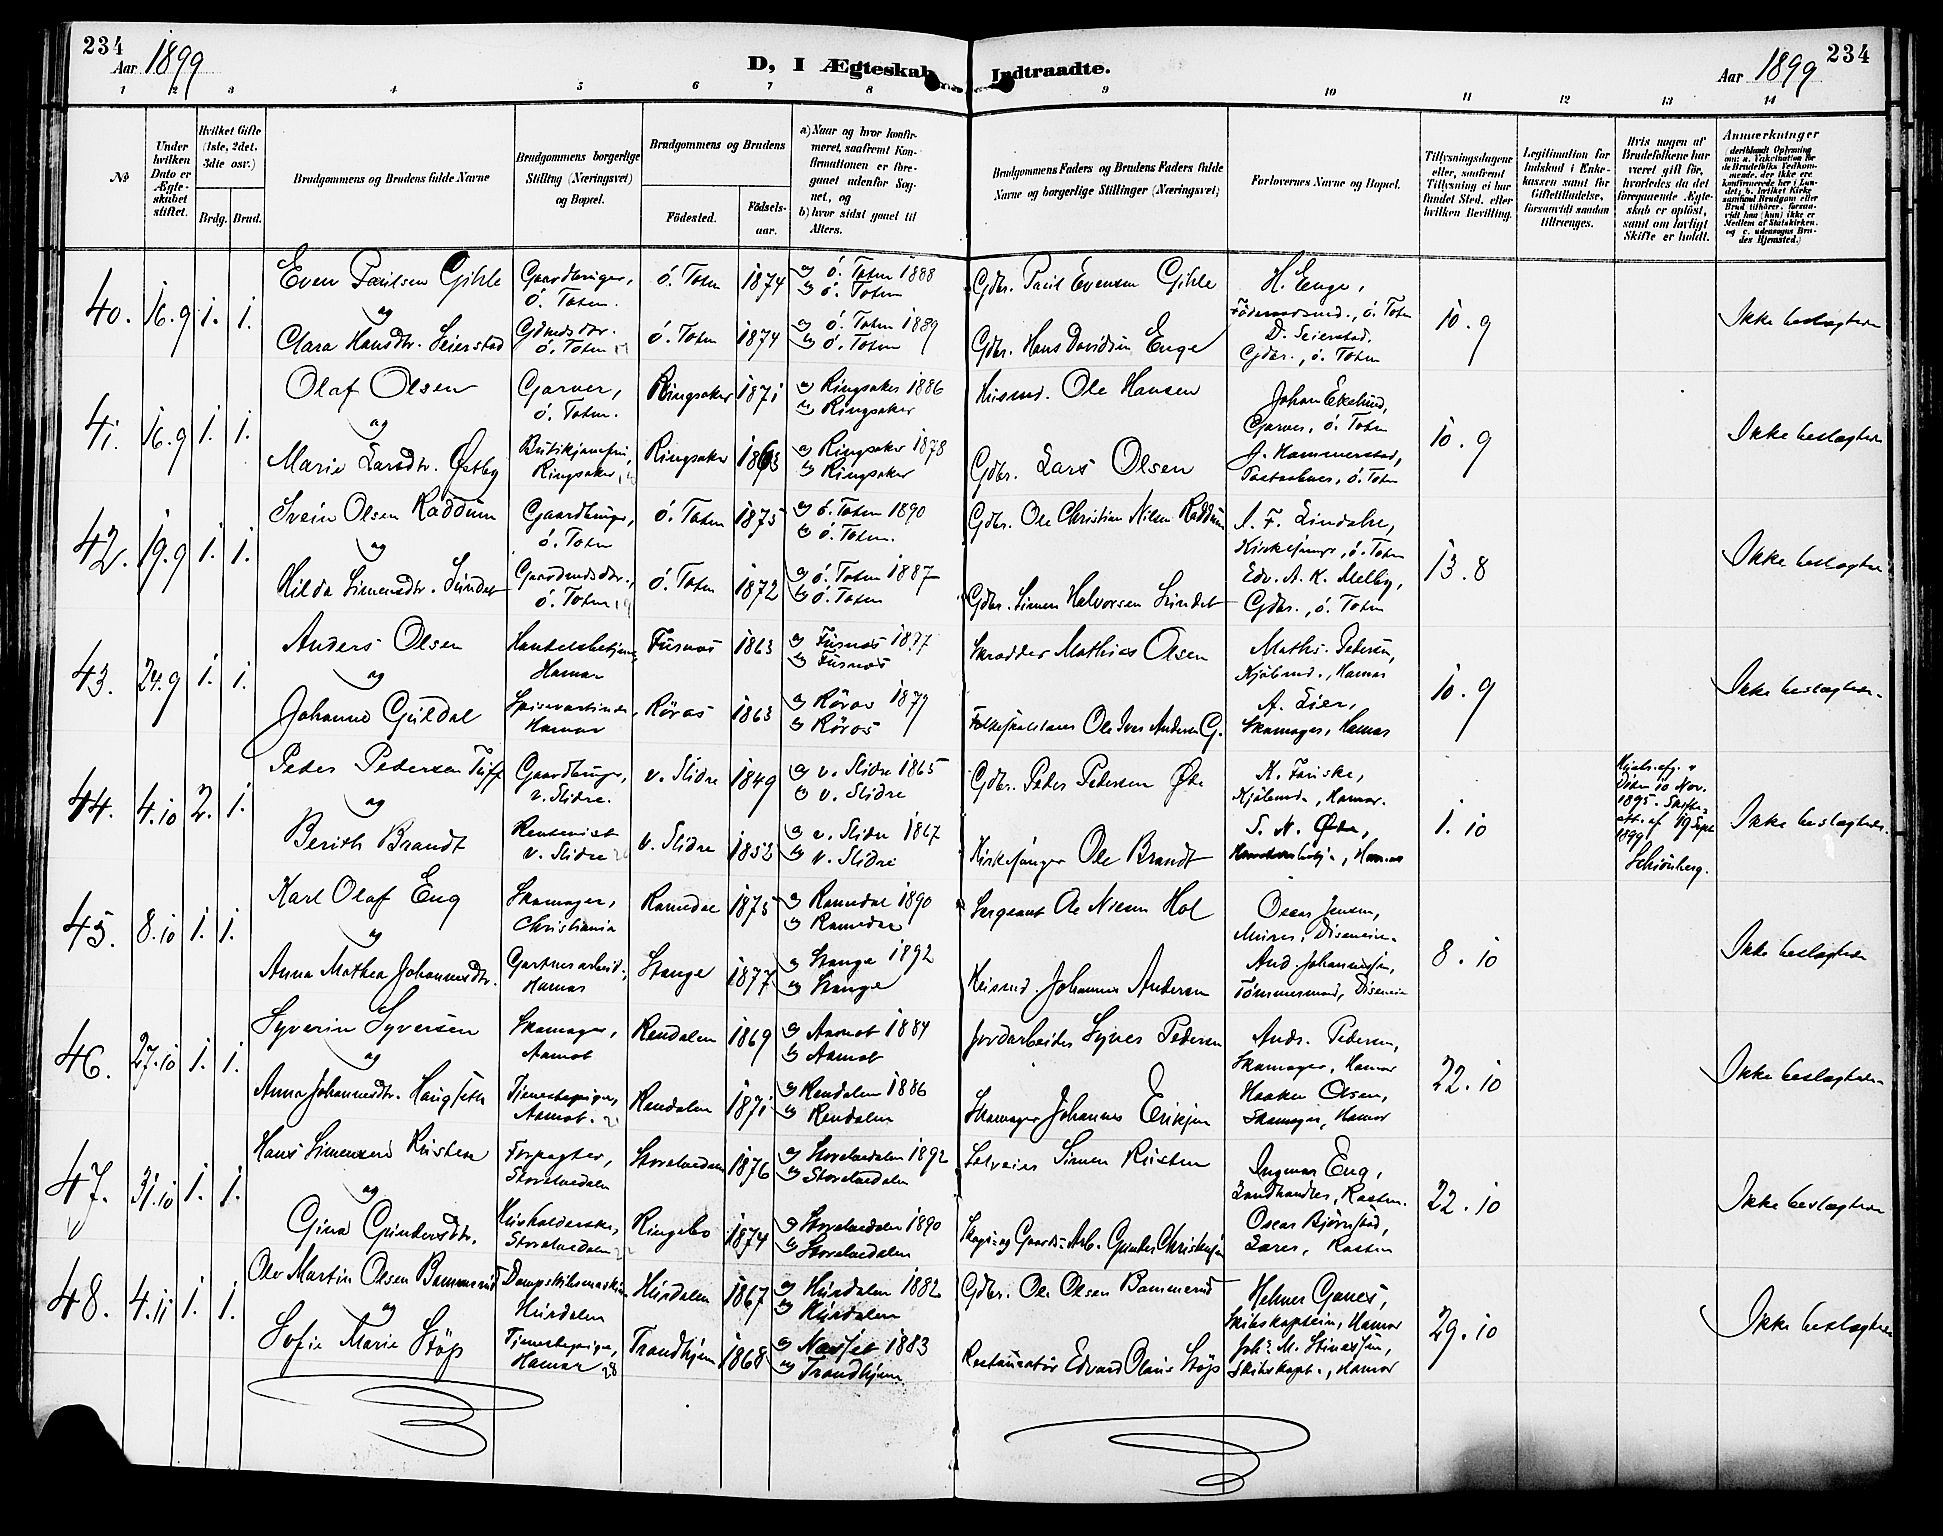 234
Aar 1899
D, I Ægteskab Indtraadte.
Aar 1899
234
1 2 3 4 5 6 7 8 9 10 11 12 13 14
No
Under hvilken Dato er Ægteskabet stiftet.
Hvilket Gifte (1ste, 2det. 3die osv.)
Brdg. Brud.
Brudgommens og Brudens fulde Navne
Brudgommens borgerlige Stilling (Næringsvei) og Bopæl.
Brudgommens og Brudens
Födested.
Födselsaar.
a) Naar og hvor konfirmeret, saafremt Konfirmationen er foregaaet udenfor Sognet, og
b) hvor sidst gaaet til Alters.
Brudgommens Faders og Brudens Faders fulde Navne og borgerlige Stillinger (Næringsvei)
Forlovernes Navne og Bopæl.
Tillysningsdagene eller, saafremt Tillysning ei har fundet Sted, efter hvilken Bevilling.
Legitimation for Indskud i Enkekassen samt for Giftetilladelse, forsaavidt saadan tiltrænges.
Hvis nogen af Brudefolkene har været gift för, hvorledes da det foregaaende Ægteskab er oplöst, samt om lovligt Skifte er holdt.
Anmærkninger
40. 16.9 1. 1.
Even Paulsen Gihle
og
Clara Hansdtr. Seierstad
Gaardbruger, ö. Toten.
ö. Toten 1874
a) ö. Toten 1888
b) ö. Toten
ö. Toten 1874
a) ö. Toten 1889
b) ö. Toten
Gdbr. Paul Evensen Gihle
Gdbr. Hans Davidsen Enge
H. Enge,
ö. Toten
D. Seierstad.
Gdbr., ö. Toten
10.9
Ikke beslægtede
41. 16.9 1. 1.
Olaf Olsen
og
Marie Larsdtr. Østby
Garver, ö. Toten.
Ringsaker 1871
a) Ringsaker 1886
b) Ringsaker
Ringsaker,
Ringsaker 1863
a) Ringsaker 1878
b) Ringsaker
Husmd. Ole Hansen
Gdbr. Lars Olsen
Johan Ekelund,
Garver, ö. Toten
J. Hammerstad,
ö. Toten
10.9
Ikke beslægtede
42. 19.9 1. 1.
Svein Olsen Raddum
og
Hilda Simensdtr. Sundet
Gaardbruger, ö. Toten
ö. Toten 1875
a) ö. Toten 1890
b) ö. Toten.
ö. Toten 1872
a) ö. Toten 1887
b) ö. Toten
Gdbr. Ole Christian Nilsen Raddum
Gdbr. Simen Halvorsen Sundet
Kirkesanger, ö. Toten
Edv. A. K. Melby,
Gdbr., ö. Toten
13.8
Ikke beslægtede
43. 24.9 1. 1.
Anders Olsen
og
Johanne Guldal
Hamar
Furnæs 1863
a) Furnæs 1877
b) Furnæs
Hamar
Röros 1863
a) Röros 1879
b) Röros
Skrædder Mathias Olsen
Ole Iver Andersen G.
Maths. Pedersen,
Kjøbmd., Hamar
A. Lier,
Skomager, Hamar
10.9
Ikke beslægtede.
44. 4.10 2. 1.
Peder Pedersen
og
Berith Brandt
Gaardbruger, v. Slidre.
v. Slidre 1849
a) v. Slidre 1865
b) v. Slidre
v. Slidre
v. Slidre 1853
a) v. Slidre 1867
b) v. Slidre
Gdbr. Peder Pedersen Øde
Kirkesanger Ole Brandt
K. Fariske,
Kjøbmd., Hamar.
Hamar
1.10
10 Nov. 1895. Skifteatt. af 19 Sept 1899
Ikke beslægtede.
45. 8.10 1. 1.
Karl Olaf Eng
og
Anna Mathea Johannesdtr.
Skomager, Christiania
Romedal 1875
a) Romedal 1890
b) Romedal
Gartnerarbeid., Hamar
Stange 1877
a) Stange 1892
b) Stange
Sergeant Ole Nilsen Hol
Husmd. Johannes Andersen
Oscar Jensen,
Murer, Disenein.
And. Johannessen,
Tömmermand, Disenein
8.10
Ikke beslægtede
46. 27.10 1. 1.
Syverin Syversen
og
Anna Johannesdtr. Haugseth
Skomager, Aamot
Rendalen 1869
a) Aamot 1884
b) Aamot
Tjenestepige, Aamot.
Rendalen 1871
a) Rendalen 1886
b) Rendalen
Jordarbeider Syver Pedersen
Skomager Johannes Eriksen
Andr. Pedersen,
Skomager, Hamar
Haakon Olsen,
Skomager, Hamar
22.10
Ikke beslægtede
47. 31.10 1. 1.
Hans Simensen Rusten
og
Gina Gundersdtr.
Forpagter, Storelvedalen
Storelvedalen 1876
a) Storelvedalen 1892
b) Storelvedalen
Husholderske, Storelvedalen
Ringebo 1874
a) Storelvedalen 1890
b) Storelvedalen
Selveier Simen Rusten
Skogs- og Gaards-Arb. Gunder Christensen
Ingmar Eng,
Landhandler, Rasten.
Oscar Bjørnstad,
Lærer, Rasten
22.10
Ikke beslægtede
48. 4.11 1. 1.
Ole Martin Olsen Bammerud
og
Sofie Marie Støp
Hurdalen
Hurdalen 1867
a) Hurdalen 1882
b) Hurdalen
Tjenestepige, Hamar 28
Trondhjem 1868
a) Næsset 1883
b) Trondhjem
Gdbr. Ole Olsen Bammerud
Restauratør Edvard Olaus Støp
Helmer Ganes,
Skibskaptein, Hamar
Joh: M. Stinessen,
Skibskapt., Hamar
29.10
Ikke beslægtede